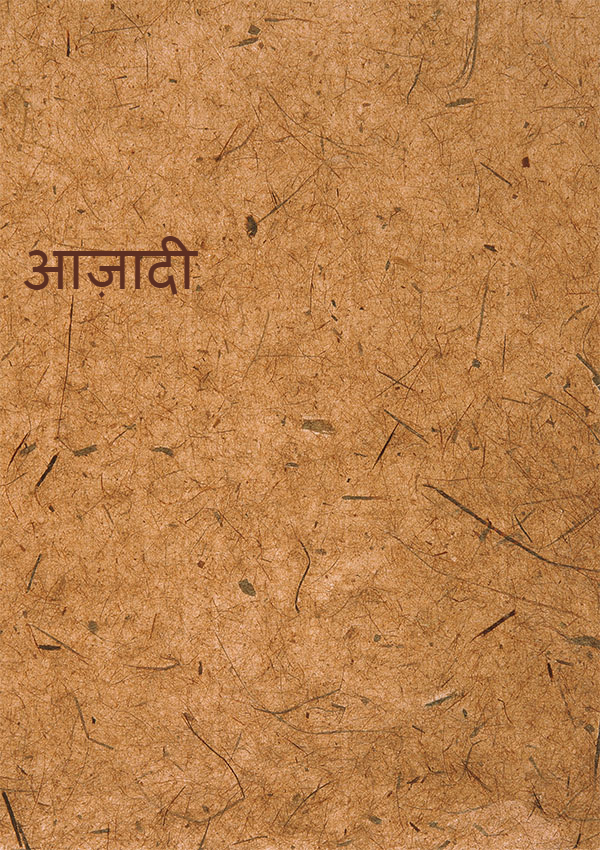 आजादी